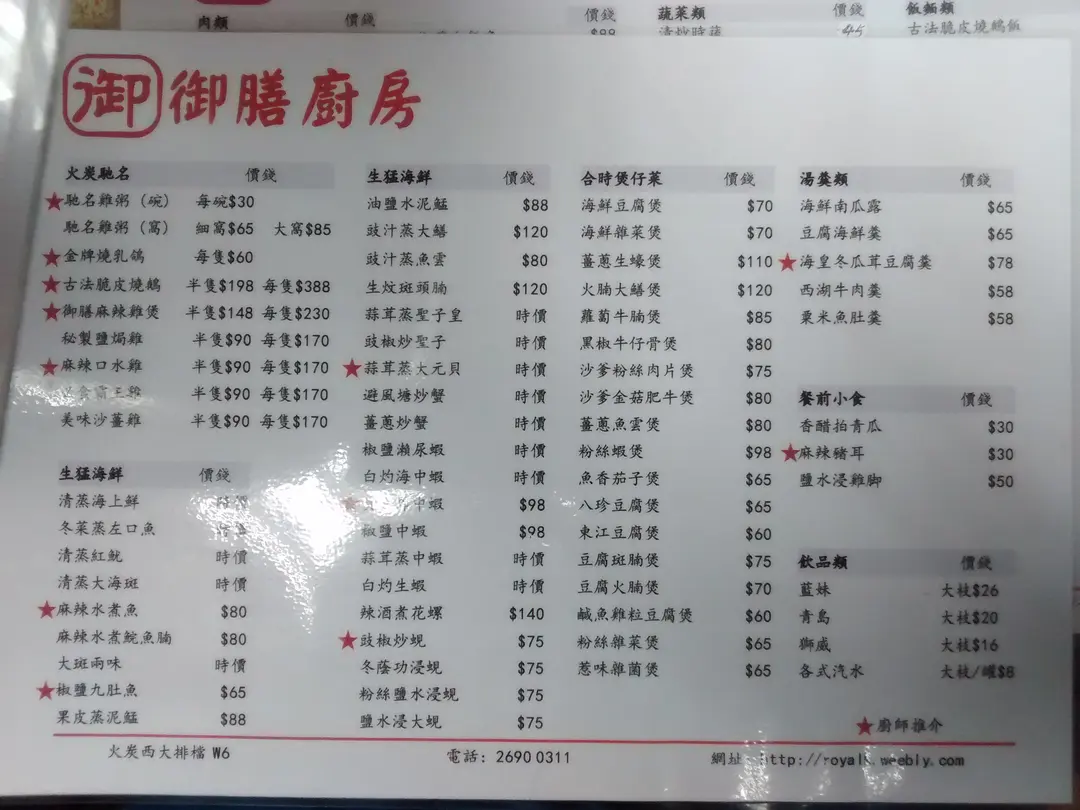 肉類 價錢 價錢 蔬菜類 價錢 飯麵類
$88 清炒時蔬 45 古法脆皮燒鵝飯
御 御膳廚房
火炭馳名 價錢
★馳名雞粥（碗） 每碗$30
馳名雞粥（窩） 細窩$65 大窩$85
★金牌燒乳鴿 每隻$60
★古法脆皮燒鵝 半隻$198 每隻$388
★御膳麻辣雞煲 半隻$148 每隻$230
秘製鹽焗雞 半隻$90 每隻$170
★麻辣口水雞 半隻$90 每隻$170
霸王雞 半隻$90 每隻$170
美味沙薑雞 半隻$90 每隻$170
生猛海鮮 價錢
清蒸海上鮮 時價
冬菜蒸左口魚
清蒸紅魷 時價
清蒸大海斑 時價
★麻辣水煮魚 $80
麻辣水煮鯇魚腩 $80
大斑兩味 時價
★椒鹽九肚魚 $65
果皮蒸泥鯭 $88
生猛海鮮 價錢
油鹽水泥鯭 $88
豉汁蒸大鱔 $120
豉汁蒸魚雲 $80
生炆斑頭腩 $120
蒜茸蒸聖子皇 時價
豉椒炒聖子 時價
★蒜茸蒸大元貝 時價
避風塘炒蟹 時價
薑蔥炒蟹 時價
椒鹽瀨尿蝦 時價
白灼海中蝦 時價
★中蝦 $98
椒鹽中蝦 $98
蒜茸蒸中蝦 時價
白灼生蝦 時價
辣酒煮花螺 $140
★豉椒炒蜆 $75
冬蔭功浸蜆 $75
粉絲鹽水浸蜆 $75
鹽水浸大蜆 $75
合時煲仔菜 價錢
海鮮豆腐煲 $70
海鮮雜菜煲 $70
薑蔥生蠔煲 $110
火腩大鱔煲 $120
蘿蔔牛腩煲 $85
黑椒牛仔骨煲 $80
沙爹粉絲肉片煲 $75
沙爹金菇肥牛煲 $80
薑蔥魚雲煲 $80
粉絲蝦煲 $98
魚香茄子煲 $65
八珍豆腐煲 $65
東江豆腐煲 $60
豆腐斑腩煲 $75
豆腐火腩煲 $70
鹹魚雞粒豆腐煲 $60
粉絲雜菜煲 $65
惹味雜菌煲 $65
湯羹類 價錢
海鮮南瓜露 $65
豆腐海鮮羹 $65
★海皇冬瓜茸豆腐羹 $78
西湖牛肉羹 $58
粟米魚肚羹 $58
餐前小食 價錢
香醋拍青瓜 $30
★麻辣豬耳 $30
鹽水浸雞腳 $50
飲品類 價錢
藍妹 大枝$26
青島 大枝$20
獅威 大枝$16
各式汽水 大枝/罐$8
★廚師推介
火炭西大排檔 W6 電話: 2690 0311 網址 http://royalk.weebly.com